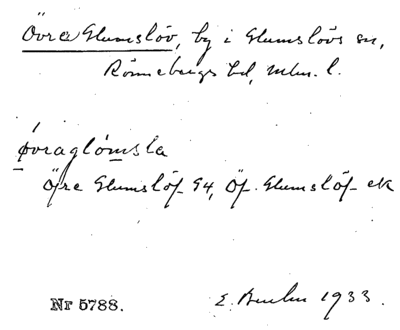 Övra Glumslöv, by i Glumslövs sn,
Rönnebergs hd, Mlm. l.
ǿvraglómsla
Öfre Glumslöf 94, Öf. Glumslöf ek
Nr 5788.
E. 1933.